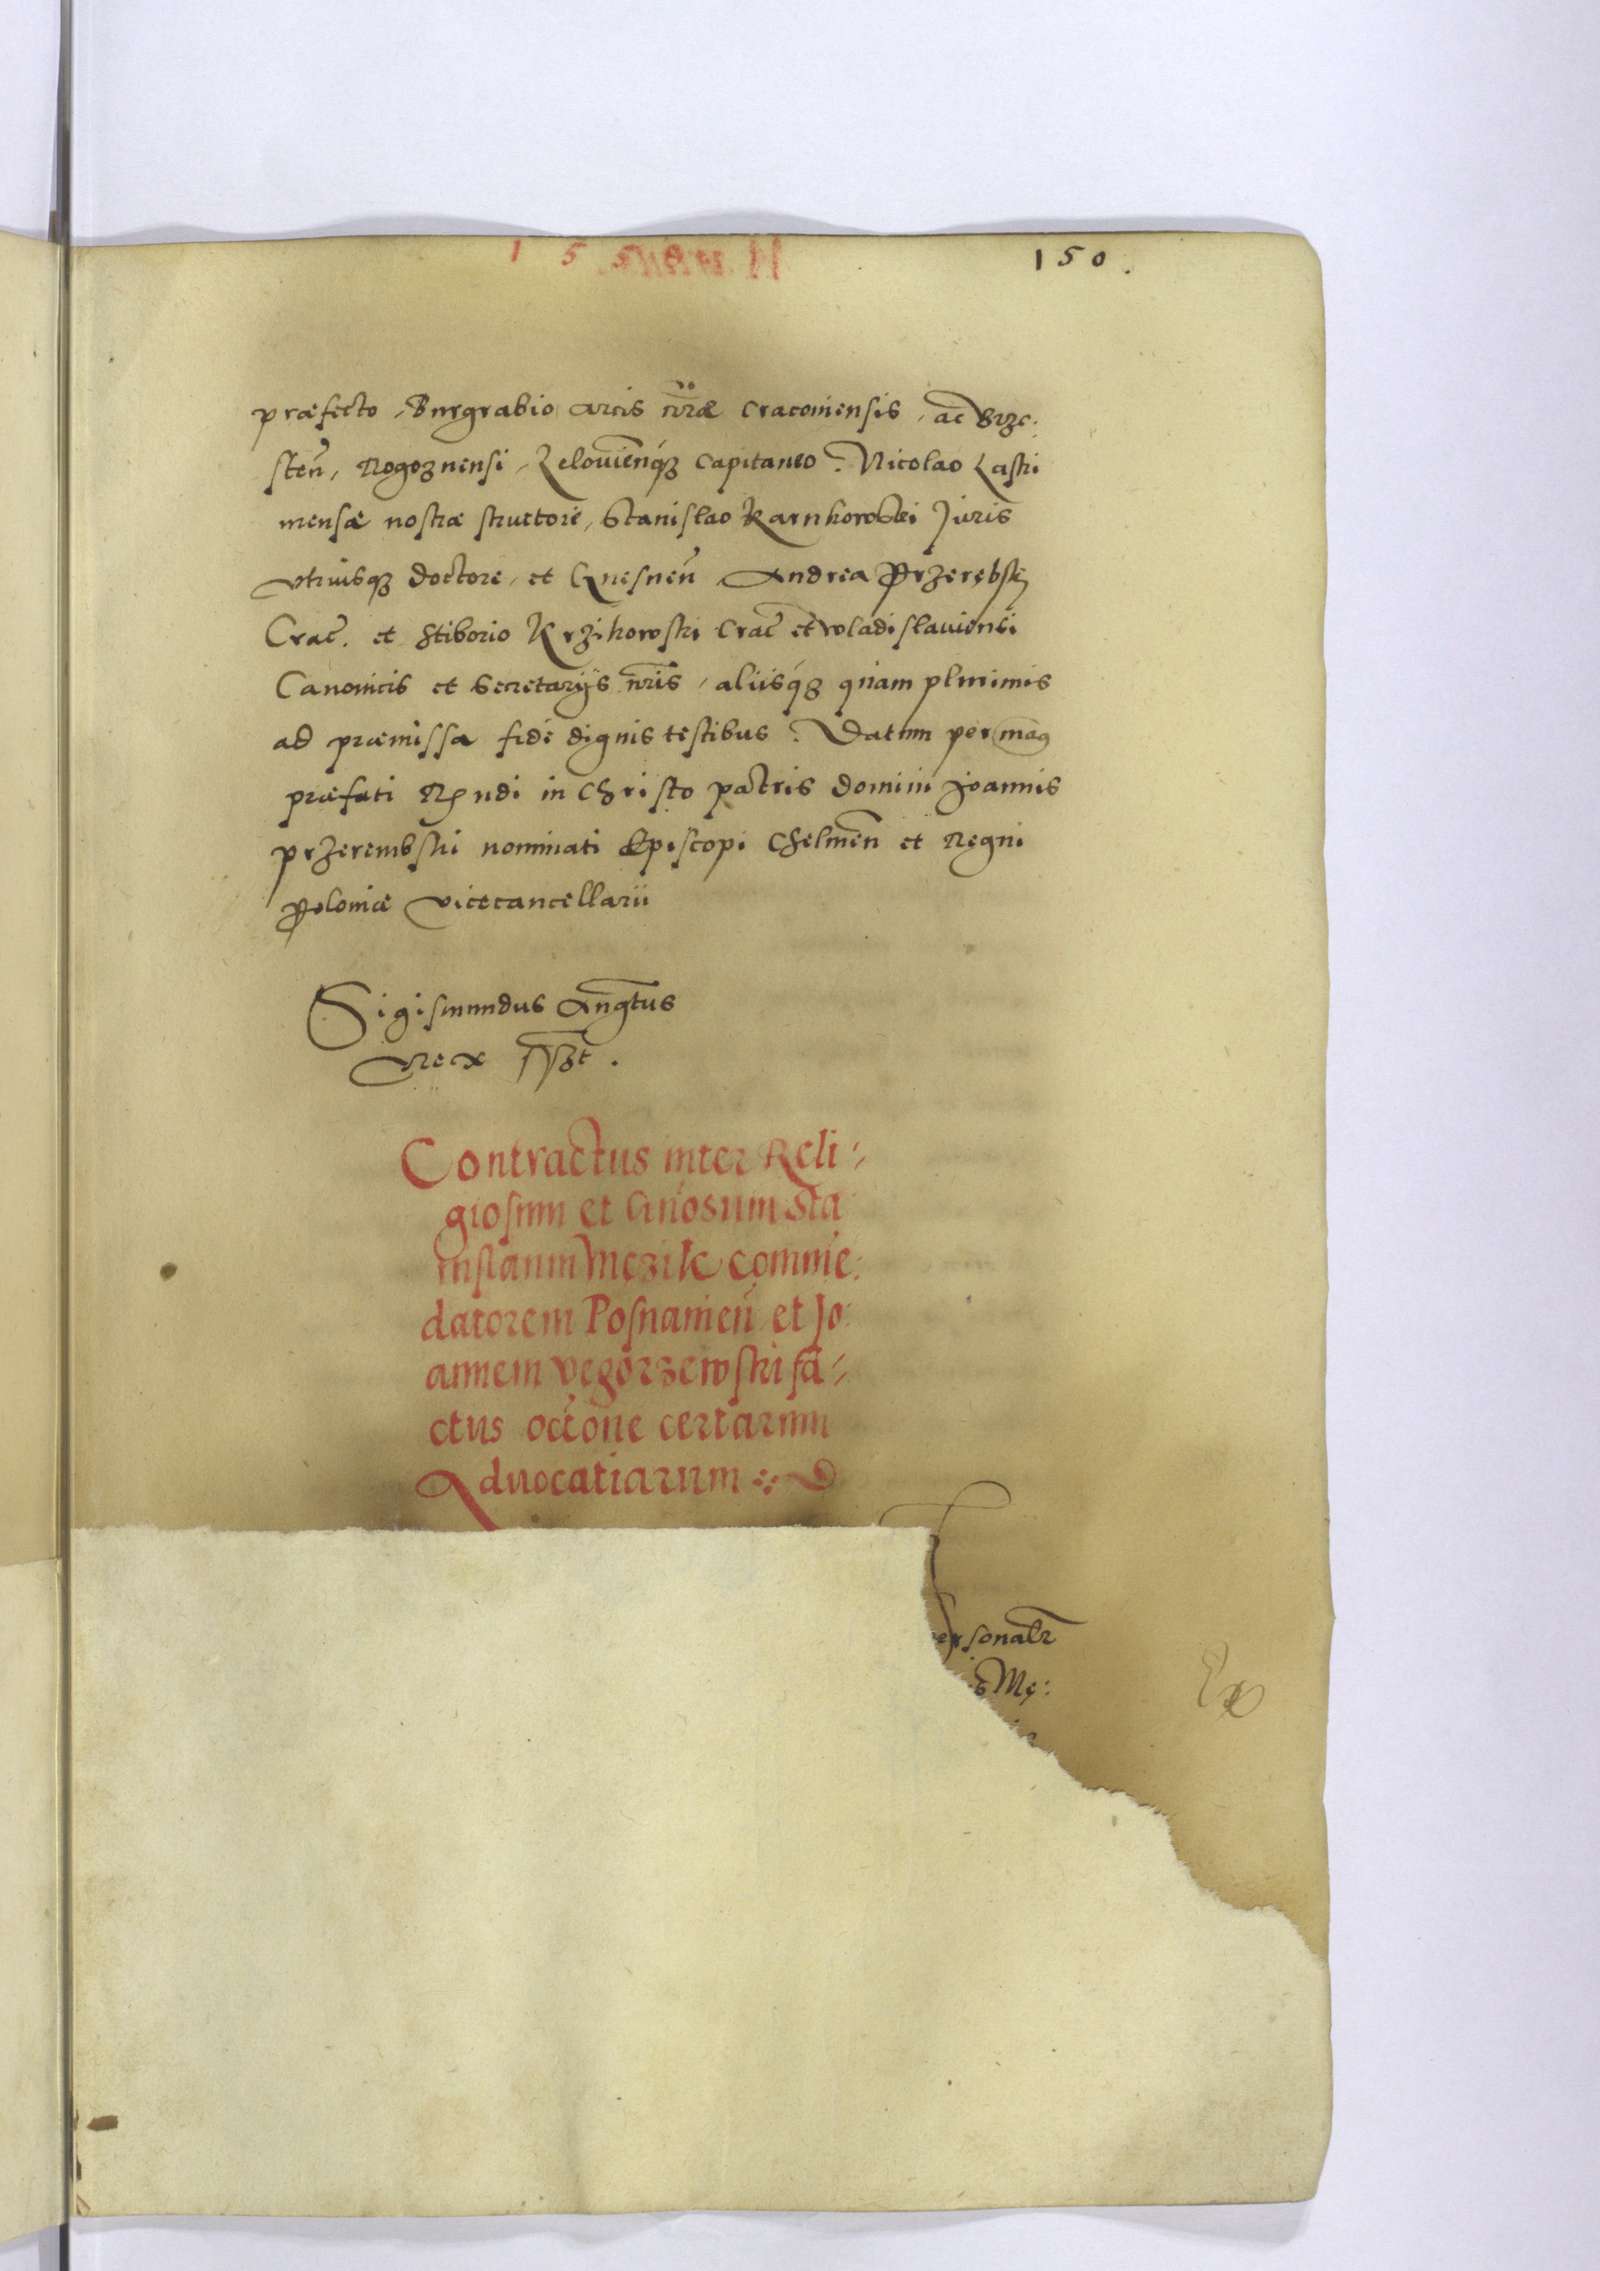 1 5 5
150.
præfecto, Burgrabio arcis nr̃æ Cracouiensis, ac Brze:
steñ, Rogoznensi, Zelouieñq́ȝ Capitaneo. Nicolao Laski
mensæ nostræ structore, Stanislao Karnkowski Juris
vtriusqȝ doctore, et Gnesneñ, Andrea Przerębski
Crac̃. et Stiborio Krzikowski Crac̃ et wladislauiensi
Canonicis et Secretarÿs nr̃is, aliisq́ȝ quam plurimis
ad præmissa fide dignis testibus. Datum per man9
præfati Rṇdi in Christo patris domini Joannis
przerembski nominati Episcopi Chelmeñ et Regni
Poloniæ vicecancellarii
Sigismundus Augtus
Rex sszt.
Contractus inter Reli⸗
giosum et Gn̄osum Sta
nislaum Męzik comme:
datorem Posnanieñ et Jo:
annem Vegorzewski fa⸗
ctus occ̃one certarum
Aduocatiarum
ersonalr̃
s Mę: